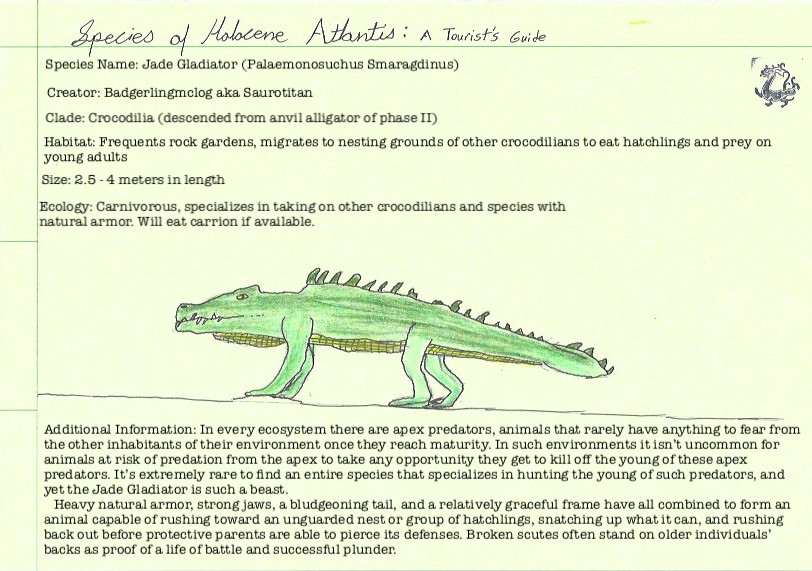 Species of Holocene Atlantis: A Tourist's Guide
Species Name: Jade Gladiator (Palaemonosuchus Smaragdinus)
Creator: Badgerlingmclog aka Saurotitan
Clade: Crocodilia (descended from anvil alligator of phase II)
Habitat: Frequents rock gardens, migrates to nesting grounds of other crocodilians to eat hatchlings and prey on
young adults
Size: 2.5 - 4 meters in length
Ecology: Carnivorous, specializes in taking on other crocodilians and species with
natural armor. Will eat carrion if available.
Additional Information: In every ecosystem there are apex predators, animals that rarely have anything to fear from
the other inhabitants of their environment once they reach maturity. In such environments it isn't uncommon for
animals at risk of predation from the apex to take any opportunity they get to kill off the young of these apex
predators. It's extremely rare to find an entire species that specializes in hunting the young of such predators, and
yet the Jade Gladiator is such a beast.
Heavy natural armor, strong jaws, a bludgeoning tail, and a relatively graceful frame have all combined to form an
animal capable of rushing toward an unguarded nest or group of hatchlings, snatching up what it can, and rushing
back out before protective parents are able to pierce its defenses. Broken scutes often stand on older individuals'
backs as proof of a life of battle and successful plunder.